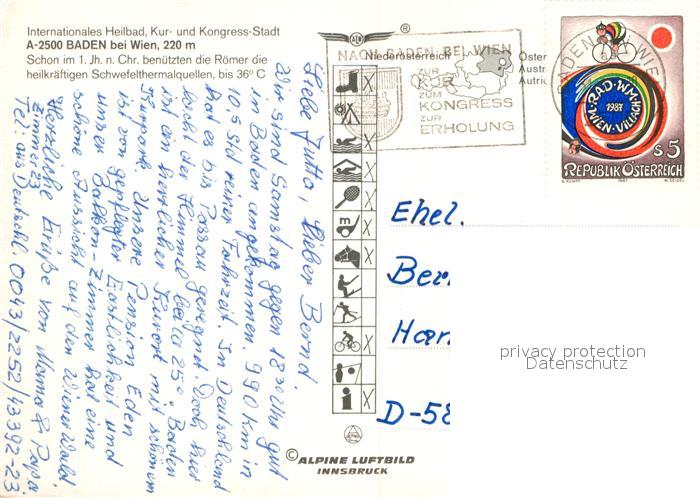 Internationales Heilbad, Kur- und Kongress-Stadt
A-2500 BADEN bei Wien, 220 m
Schon im 1. Jh. n. Chr. benützten die Römer die
heilkräftigen Schwefelthermalquellen, bis 36° C
Liebe Jutta, lieber Bernd.
Wir sind Samstag gegen 18 30 Uhr gut
in Baden angekommen. 990 km in
10,5 Std reiner Fahrzeit. In Deutschland
hat es bis Passau geregnet Doch hier
lacht der Himmel bei a 25° Baden
ist ein herrlicher Kurort mit schönem
Kurpark. Unsere Pension Eden
ist von gepflegter Gastlichkeit und
unser Balkon-Zimmer hat eine
schöne Aussicht auf den Wiener Wald
Herzliche Grüße von Mama & Papa
Zimmer 23
Tel: aus Deutschl 0043/2252/43392-23
Niederösterreich
Öster
Austr
Autric
NACH BADEN BEI WIEN
ZUR
KUR
ZUM
KONGRESS
ZUR
ERHOLUNG
BADEN
WIEN
RAD-WM
1987
WIEN-VILLACH
S 5
REPUBLIK ÖSTERREICH
1987
m
X
X
X
X
X
X
X
X
X
X
i X
Ehel.
Ber
Har
D-58
privacy protection
Datenschutz
© ALPINE LUFTBILD
INNSBRUCK